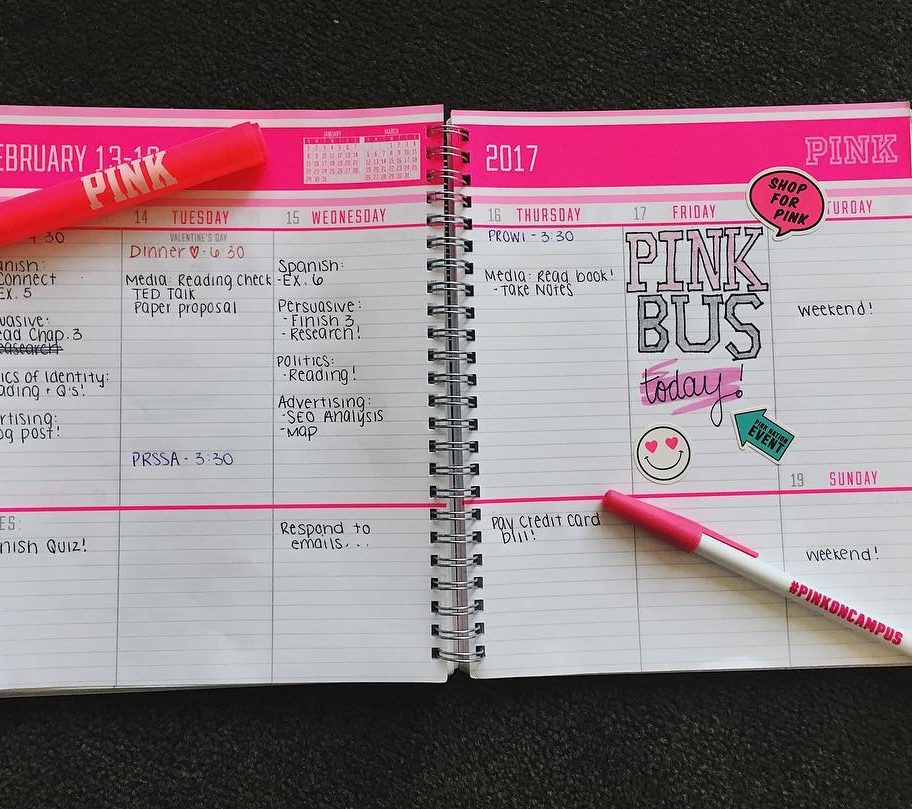 FEBRUARY 13-19
PINK
JANUARY
MARCH
4:30
Connect
EX. 5
Read Chap. 3
Research
Politics of Identity:
Reading + Q's!
Advertising:
Blog post!
NOTES:
Spanish Quiz!
14 TUESDAY
VALENTINE'S DAY
Dinner ♡ - 6:30
Media: Reading Check
TED Talk
Paper proposal
PRSSA - 3:30
15 WEDNESDAY
Spanish:
-EX. 6
Persuasive:
- Finish 3
- Research!
Politics:
-Reading!
Advertising:
-SEO Analysis
-Map
Respond to
emails...
2017
PINK
16 THURSDAY
PROWL - 3:30
Media: Read book!
- Take Notes
Pay Credit Card
Bill!
17 FRIDAY
PINK
BUS
today!
PINK NATION
EVENT
SHOP
FOR
PINK
TURDAY
weekend!
19 SUNDAY
weekend!
#PINKONCAMPUS